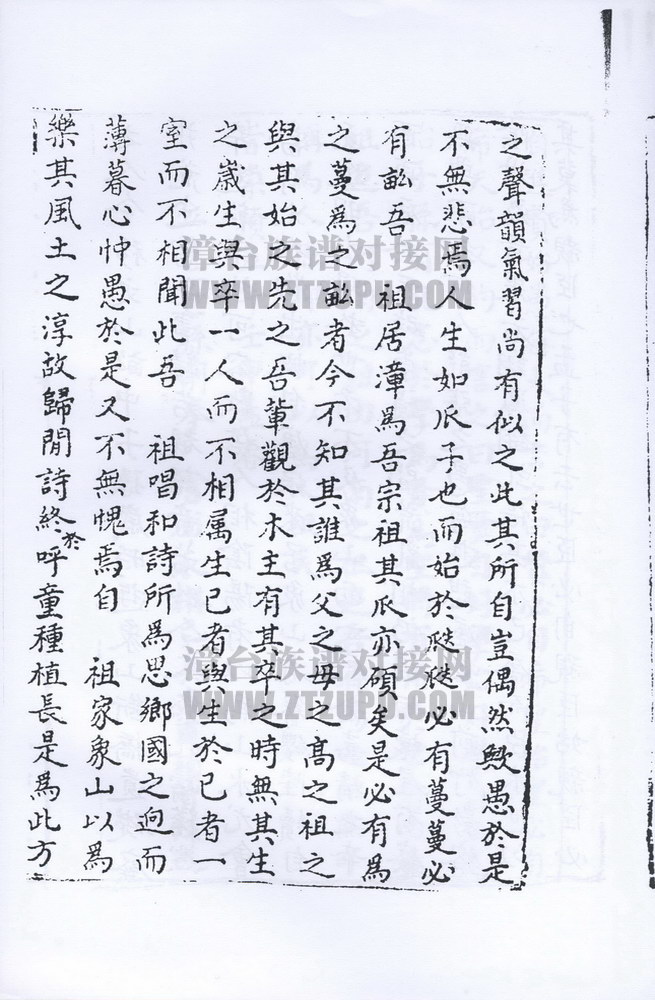 之聲韻氣習尚有似之此其所自豈偶然歟愚於是
不無悲焉人生如瓜子也而始於瓞瓞必有蔓蔓必
有畆吾 祖居漳爲吾宗祖其瓜亦碩矣是必有爲
之蔓爲之畆者今不知其誰爲父之母之髙之祖之
與其始之先之吾軰觀於木主有其卒之時無其生
之嵗生與卒一人而不相属生己者與生於己者一
室而不相聞此吾 祖唱和詩所爲思鄉國之逈而
薄暮心忡愚於是又不無愧焉自 祖家象山以爲
樂其風土之淳故歸閒詩終於呼童種植長是爲此方
漳台族谱对接网
WWW.ZTZUPU.COM
漳台族谱对接网
WWW.ZTZUPU.COM